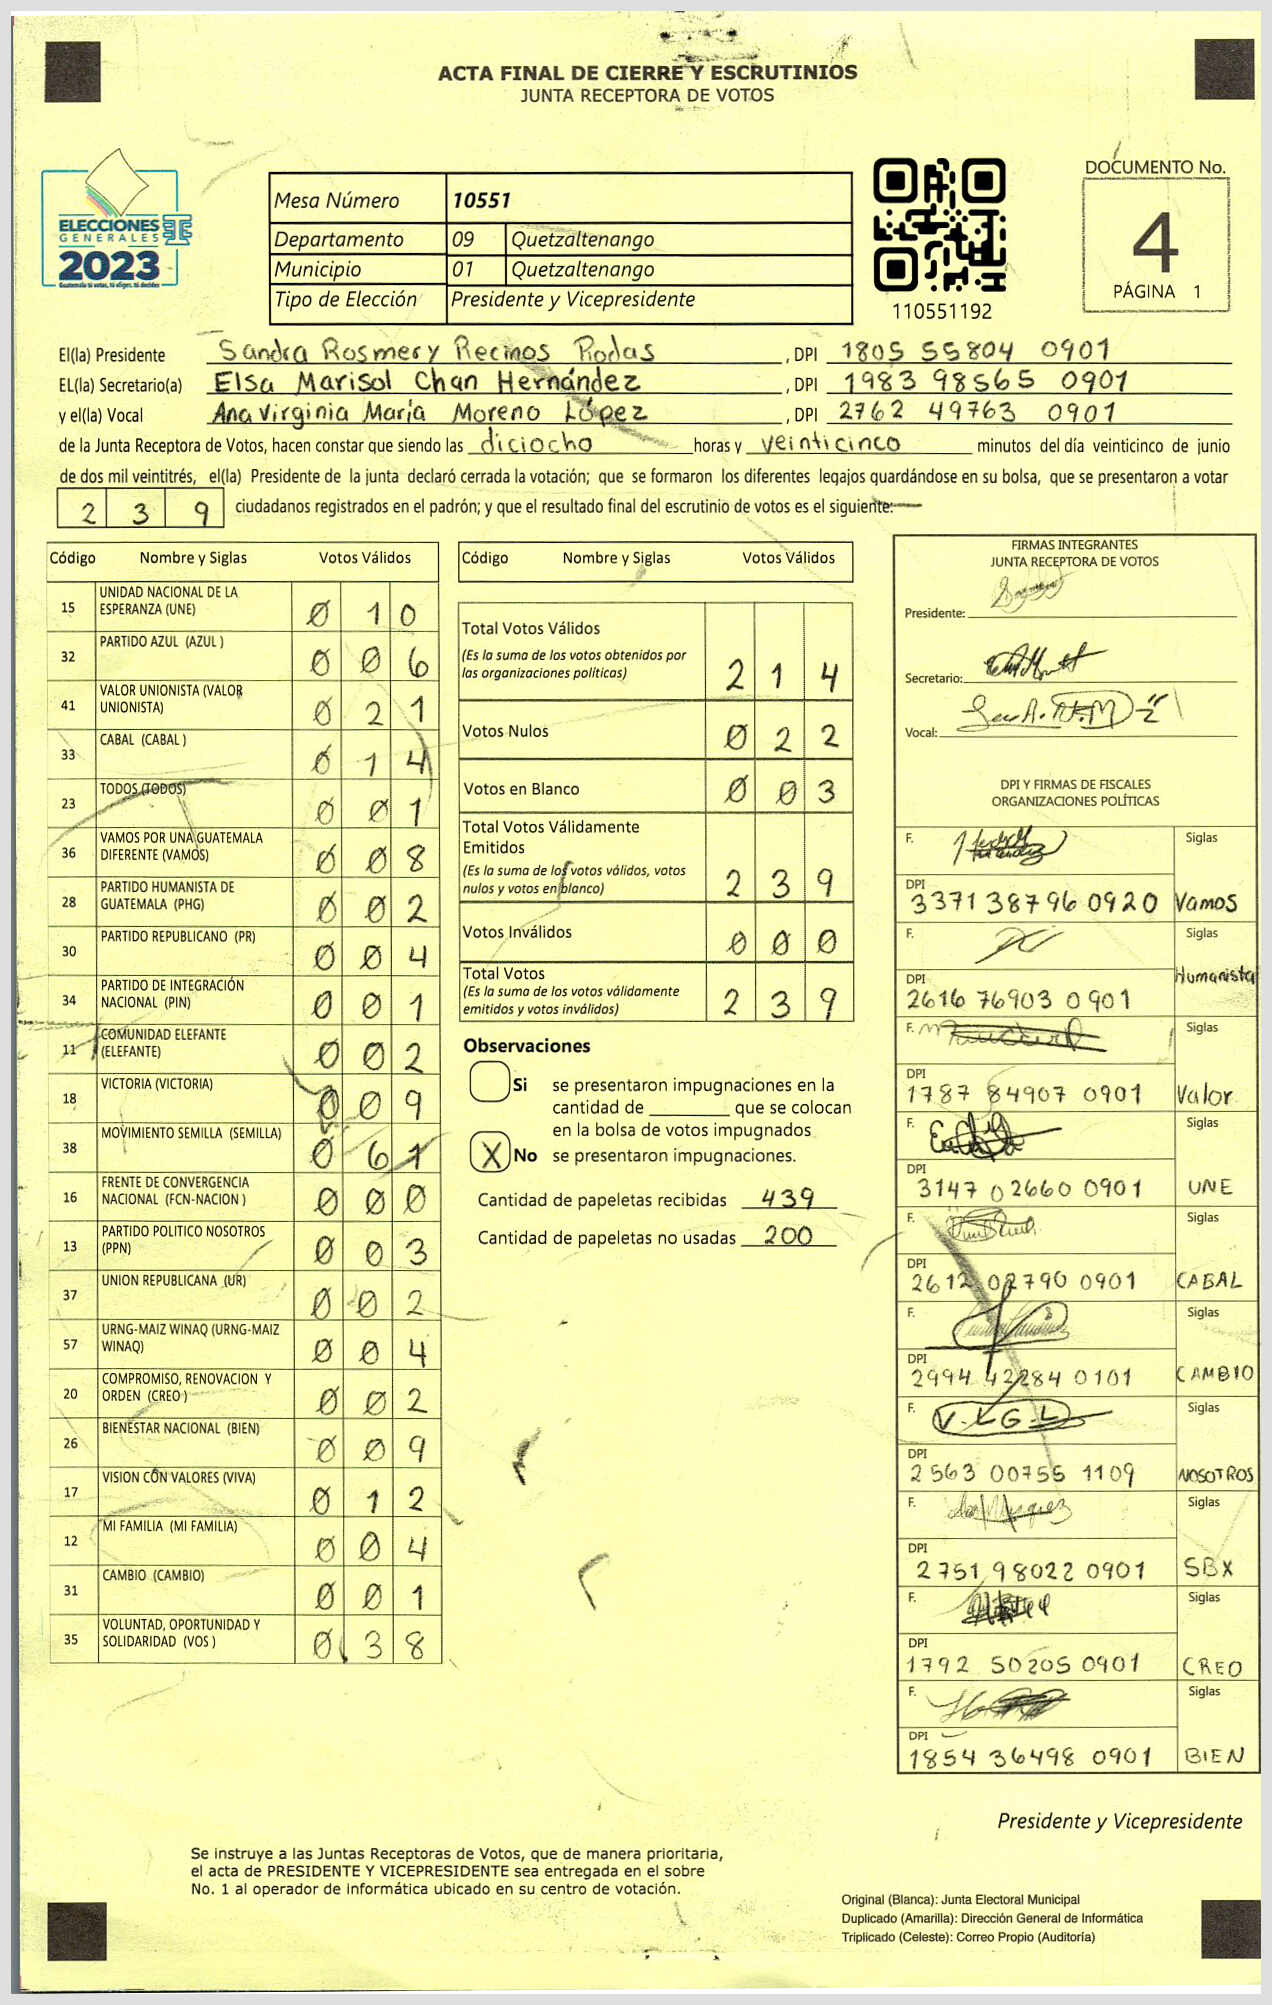 ACTA FINAL DE CIERRE Y ESCRUTINIOS
JUNTA RECEPTORA DE VOTOS
ELECCIONES
GENERALES
2023
Guatemala tú votas, tú eliges, tú decides
Mesa Número 10551
Departamento 09 Quetzaltenango
Municipio 01 Quetzaltenango
Tipo de Elección Presidente y Vicepresidente
110551192
DOCUMENTO No.
4
PÁGINA 1
El(la) Presidente Sandra Rosmery Recinos Rodas, DPI 1805 55804 0901
EL(la) Secretario(a) Elsa Marisol Chan Hernández, DPI 1983 98565 0901
y el(la) Vocal Ana Virginia María Moreno López, DPI 2762 49763 0901
de la Junta Receptora de Votos, hacen constar que siendo las diciocho horas y veinticinco minutos del día veinticinco de junio
de dos mil veintitrés, el(la) Presidente de la junta declaró cerrada la votación; que se formaron los diferentes legajos guardándose en su bolsa, que se presentaron a votar
2 3 9 ciudadanos registrados en el padrón; y que el resultado final del escrutinio de votos es el siguiente:
Código Nombre y Siglas Votos Válidos
15 UNIDAD NACIONAL DE LA
ESPERANZA (UNE) 0 1 0
32 PARTIDO AZUL (AZUL ) 0 0 6
41 VALOR UNIONISTA (VALOR
UNIONISTA) 0 2 1
33 CABAL (CABAL ) 0 1 4
23 TODOS (TODOS) 0 0 1
36 VAMOS POR UNA GUATEMALA
DIFERENTE (VAMOS) 0 0 8
28 PARTIDO HUMANISTA DE
GUATEMALA (PHG) 0 0 2
30 PARTIDO REPUBLICANO (PR) 0 0 4
34 PARTIDO DE INTEGRACIÓN
NACIONAL (PIN) 0 0 1
11 COMUNIDAD ELEFANTE
(ELEFANTE) 0 0 2
18 VICTORIA (VICTORIA) 0 0 9
38 MOVIMIENTO SEMILLA (SEMILLA) 0 6 1
16 FRENTE DE CONVERGENCIA
NACIONAL (FCN-NACION ) 0 0 0
13 PARTIDO POLITICO NOSOTROS
(PPN) 0 0 3
37 UNION REPUBLICANA (UR) 0 0 2
57 URNG-MAIZ WINAQ (URNG-MAIZ
WINAQ) 0 0 4
20 COMPROMISO, RENOVACION Y
ORDEN (CREO ) 0 0 2
26 BIENESTAR NACIONAL (BIEN) 0 0 9
17 VISION CON VALORES (VIVA) 0 1 2
12 MI FAMILIA (MI FAMILIA) 0 0 4
31 CAMBIO (CAMBIO) 0 0 1
35 VOLUNTAD, OPORTUNIDAD Y
SOLIDARIDAD (VOS ) 0 3 8
Código Nombre y Siglas Votos Válidos
Total Votos Válidos
(Es la suma de los votos obtenidos por
las organizaciones políticas) 2 1 4
Votos Nulos 0 2 2
Votos en Blanco 0 0 3
Total Votos Válidamente
Emitidos
(Es la suma de los votos válidos, votos
nulos y votos en blanco) 2 3 9
Votos Inválidos 0 0 0
Total Votos
(Es la suma de los votos válidamente
emitidos y votos inválidos) 2 3 9
Observaciones
Si se presentaron impugnaciones en la
cantidad de ________ que se colocan
en la bolsa de votos impugnados
X No se presentaron impugnaciones.
Cantidad de papeletas recibidas 439
Cantidad de papeletas no usadas 200
FIRMAS INTEGRANTES
JUNTA RECEPTORA DE VOTOS
Presidente:
Secretario:
Vocal:
DPI Y FIRMAS DE FISCALES
ORGANIZACIONES POLÍTICAS
F. Siglas
DPI
3371 38796 0920 Vamos
F. Siglas
Humanista
DPI
2616 76903 0901
F. Siglas
DPI
1787 84907 0901 Valor
F. Siglas
DPI
3147 02660 0901 UNE
F. Siglas
DPI
2612 02790 0901 CABAL
F. Siglas
DPI
2994 42284 0101 CAMBIO
F. V-LG-L Siglas
DPI
2563 00755 1109 NOSOTROS
F. Siglas
DPI
2751 98022 0901 SBX
F. Siglas
DPI
1792 50205 0901 CREO
F. Siglas
DPI
1854 36498 0901 BIEN
Presidente y Vicepresidente
Se instruye a las Juntas Receptoras de Votos, que de manera prioritaria,
el acta de PRESIDENTE Y VICEPRESIDENTE sea entregada en el sobre
No. 1 al operador de informática ubicado en su centro de votación.
Original (Blanca): Junta Electoral Municipal
Duplicado (Amarilla): Dirección General de Informática
Triplicado (Celeste): Correo Propio (Auditoría)